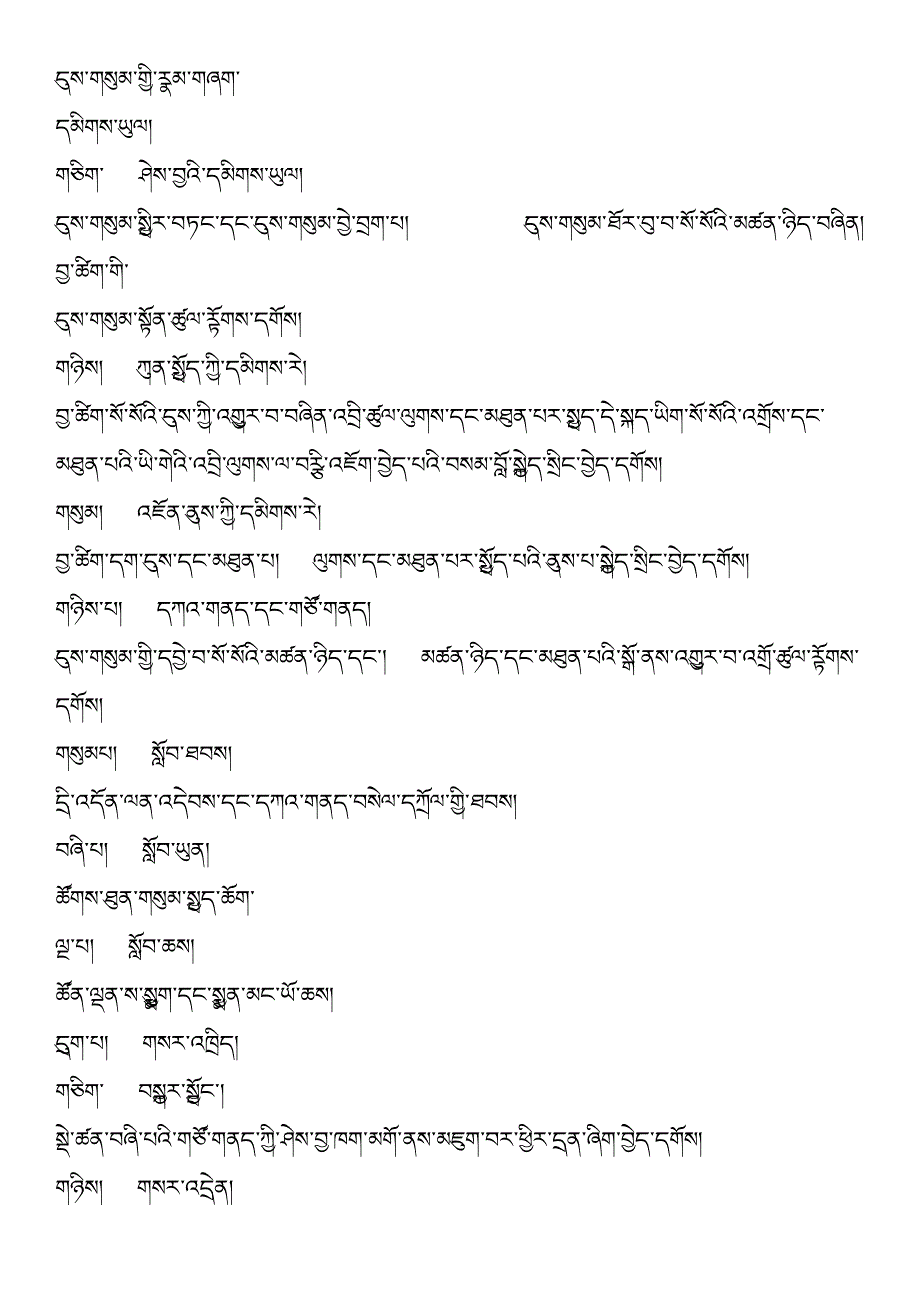 དུས་གསུམ་གྱི་རྣམ་གཞག་
དམིགས་ཡུལ།
གཅིག་ ཤེས་བྱའི་དམིགས་ཡུལ།
དུས་གསུམ་སྤྱིར་བཏང་དང་དུས་གསུམ་བྱེ་བྲག་པ། དུས་གསུམ་ཐོར་བུ་བ་སོ་སོའི་མཚན་ཉིད་བཞིན།
བྱ་ཚིག་གི་
དུས་གསུམ་སྟོན་ཚུལ་རྟོགས་དགོས།
གཉིས། ཀུན་སྤྱོད་ཀྱི་དམིགས་རེ།
བྱ་ཚིག་སོ་སོའི་དུས་ཀྱི་འགྱུར་བ་བཞིན་འབྲི་ཚུལ་ལུགས་དང་མཐུན་པར་སྤྱད་དེ་སྐད་ཡིག་སོ་སོའི་འགྲོས་དང་
མཐུན་པའི་ཡི་གེའི་འབྲི་ལུགས་ལ་བརྩི་འཇོག་བྱེད་པའི་བསམ་བློ་སྐྱེད་སྲིང་བྱེད་དགོས།
གསུམ། འཇོན་ནུས་ཀྱི་དམིགས་རེ།
བྱ་ཚིག་དག་དུས་དང་མཐུན་པ། ལུགས་དང་མཐུན་པར་སྤྱོད་པའི་ནུས་པ་སྐྱེད་སྲིང་བྱེད་དགོས།
གཉིས་པ། དཀའ་གནད་དང་གཙོ་གནད།
དུས་གསུམ་གྱི་དབྱེ་བ་སོ་སོའི་མཚན་ཉིད་དང་། མཚན་ཉིད་དང་མཐུན་པའི་སྒོ་ནས་འགྱུར་བ་འགྲོ་ཚུལ་རྟོགས་
དགོས།
གསུམཔ། སློབ་ཐབས།
དྲི་འདོན་ལན་འདེབས་དང་དཀའ་གནད་བསེལ་དཀྲོལ་གྱི་ཐབས།
བཞི་པ། སློབ་ཡུན།
ཚོགས་ཐུན་གསུམ་སྤྱད་ཆོག་
ལྔ་པ། སློབ་ཆས།
ཚོན་ལྡན་ས་སྨྱུག་དང་སྨྱན་མང་ཡོ་ཆས།
དྲུག་པ། གསར་འཁྲིད།
གཅིག་ བསྐྱར་སྦྱོང་།
སྡེ་ཚན་བཞི་པའི་གཙོ་གནད་ཀྱི་ཤེས་བྱ་ཁག་མགོ་ནས་མཇུག་བར་ཕྱིར་དྲན་ཞིག་བྱེད་དགོས།
གཉིས། གསར་འདྲེན།